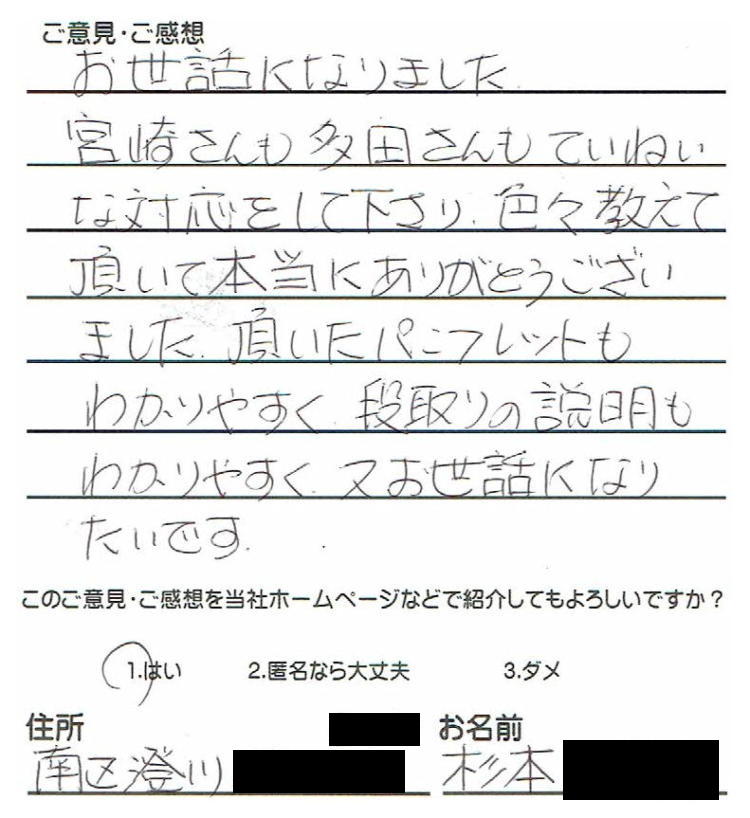 ご意見・ご感想
お世話になりました
宮崎さんも多田さんもていねい
な対応をして下さり、色々教えて
頂いて本当にありがとうござい
ました。頂いたパンフレットも
わかりやすく、段取りの説明も
わかりやすく、又お世話になり
たいです。
このご意見・ご感想を当社ホームページなどで紹介してもよろしいですか？
1.はい 2.匿名なら大丈夫 3.ダメ
住所 お名前
南区澄川 杉本